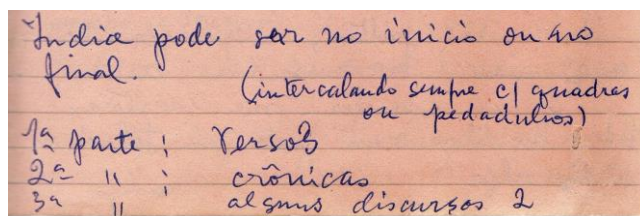 Indice pode ser no inicio ou no
final.
(intercalando sempre c/ quadros
ou pedadulhos)
1ª parte : Versos
2ª " : crônicas
3ª " algums discursos 2